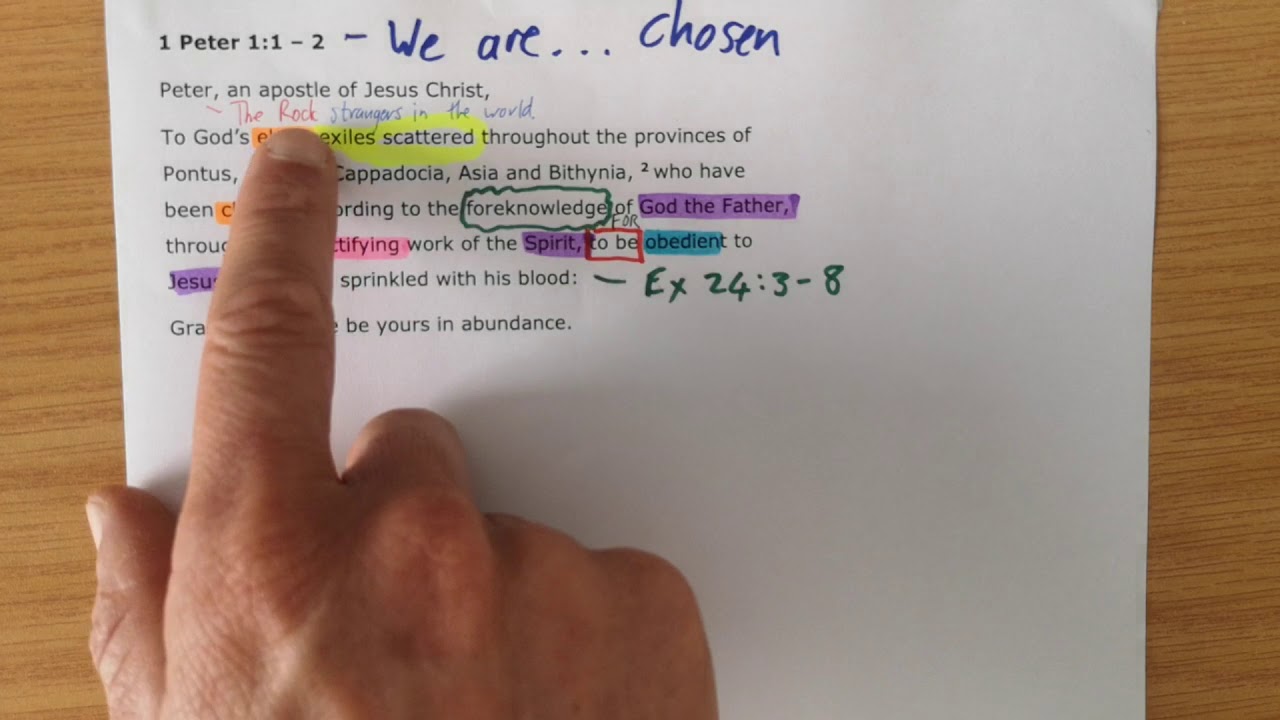 1 Peter 1:1 – 2 – We are... chosen
Peter, an apostle of Jesus Christ,
~ The Rock strangers in the world
To God's exiles scattered throughout the provinces of
Pontus, Cappadocia, Asia and Bithynia, ² who have
been according to the foreknowledge of God the Father,
FOR
work of the Spirit, to be obedient to
sprinkled with his blood: – Ex 24:3-8
be yours in abundance.